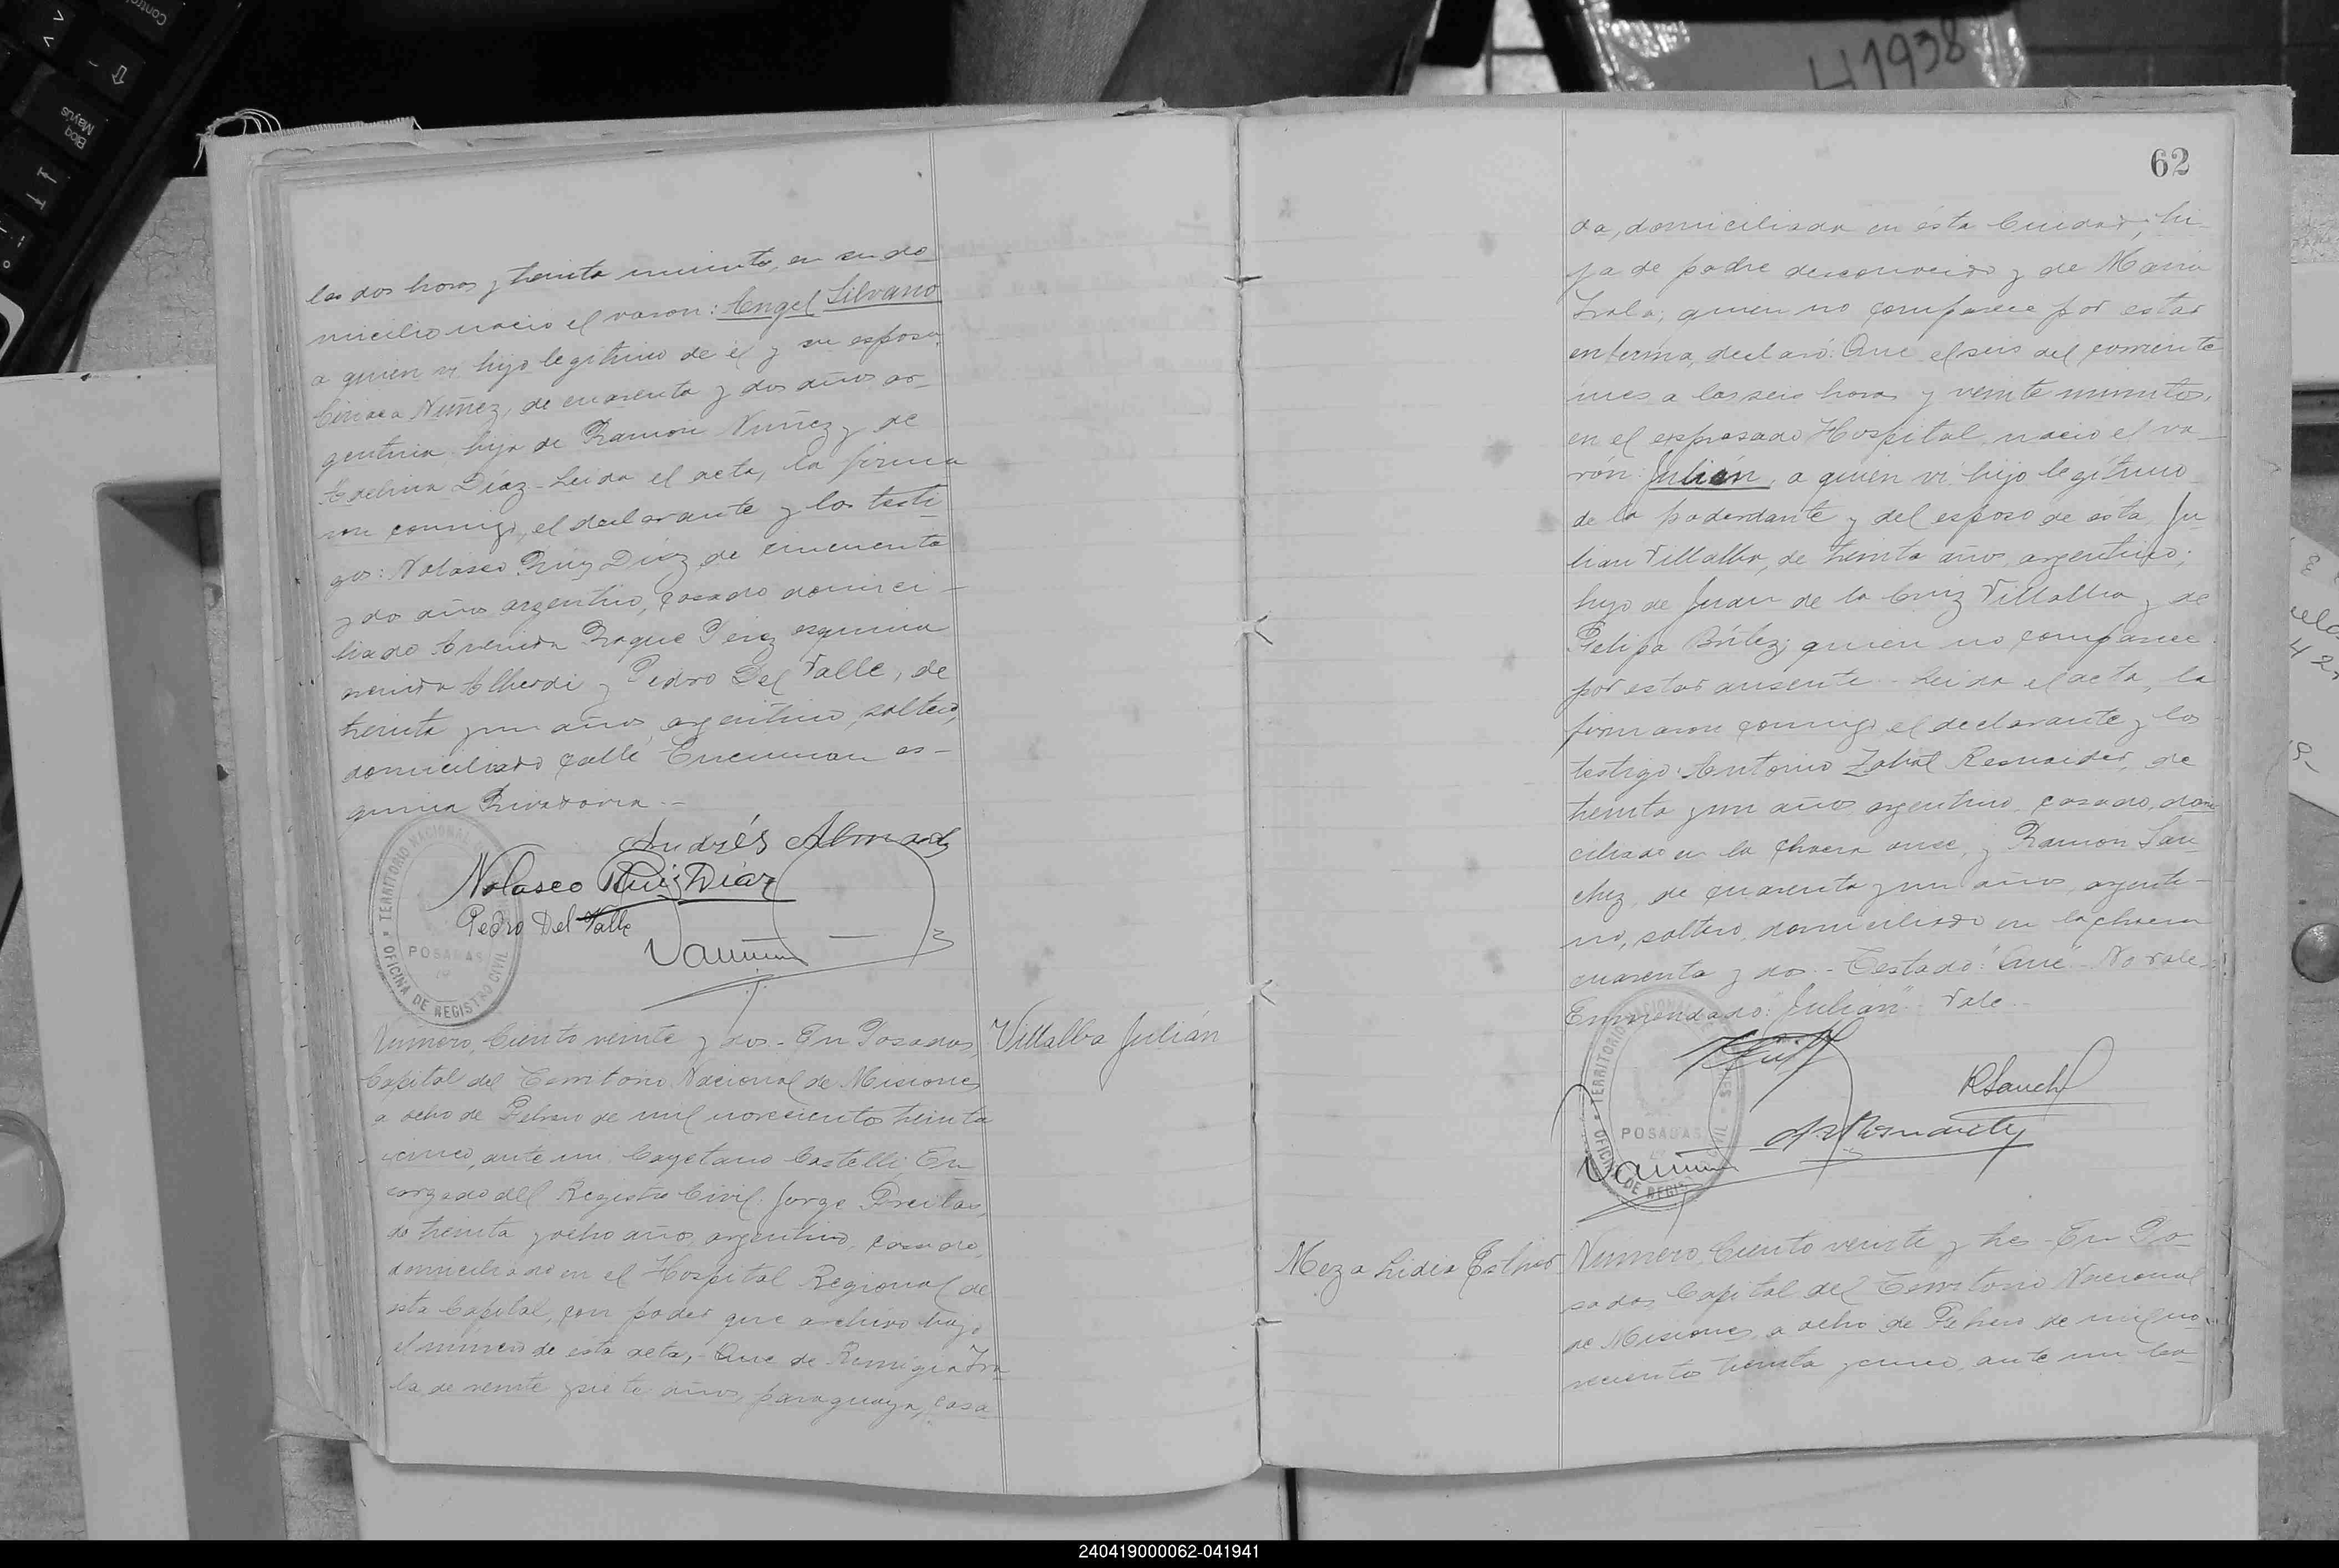 las dos horas y treinta minutos, en su do
micilio nacio el varon: Angel Silvano
a quien vi hijo legitimo de el y su esposa
Ciriaca Nuñez, de cuarenta y dos años ar-
gentina, hija de Ramon Nuñez y de
Adelina Diaz - Leida el acta, la firma
ron conmigo, el declarante y los testi
gos: Nolasco Ruiz Diaz de cincuenta
y dos años argentino, casado domici-
liado Avenida Roque Perez esquina
avenida Alberdi y Pedro Del Valle, de
treinta y un años, argentino, soltero,
domiciliado calle Tucuman es-
quina Rivadavia.-
Andrés
Nolasco Ruiz Diaz
Pedro Del Valle
TERRITORIO NACIONAL
POSADAS
OFICINA DE REGISTRO CIVIL
Numero, Ciento veinte y dos - En Posadas,
Villalba Julián
Capital del Territorio Nacional de Misiones
a ocho de Febrero de mil novecientos treinta
y cinco, ante mi Cayetano Castelli En
cargado del Registro Civil: Jorge
de treinta y ocho años, argentino, casado,
domiciliado en el Hospital Regional de
esta Capital, con poder que archivo bajo
el número de esta acta, Que de Remigia Ira
la de veinte y siete años, paraguaya, casa
62
da, domiciliada en esta Ciudad, hi-
ja de padre desconocido y de Maria
Irala; quien no comparece por estar
enferma, declaró: Que el seis del corriente
mes a las seis horas y veinte minutos,
en el expresado Hospital, nacio el va-
rón: Julián, a quien vi hijo legitimo
de la poderdante y del esposo de esta, Ju
lian Villalba, de treinta años, argentino,
hijo de Juan de la Cruz Villalba y de
Felipa Brítez; quien no comparece
por estar ausente - Leida el acta, la
firmaron conmigo el declarante y los
testigo: Antonio Zabal Resnaider, de
treinta y un años, argentino, casado, domi
ciliado en la chacra once, y Ramon San
chez, de cuarenta y un años, argenti-
no, soltero, domiciliado en la chacra
cuarenta y dos - Testado: "Que" - No vale -
Enmendado: "Julián" - Vale
TERRITORIO NACIONAL
POSADAS
OFICINA DE REGIS CIVIL
RSanch
Meza Lidia Esther
Numero, Ciento veinte y tres - En Po-
sadas, Capital del Territorio Nacional
de Misiones, a ocho de Febrero de mil no-
vecientos treinta y cinco, ante mi Ca-
H1938
Control
Bloq
Mayus
240419000062-041941